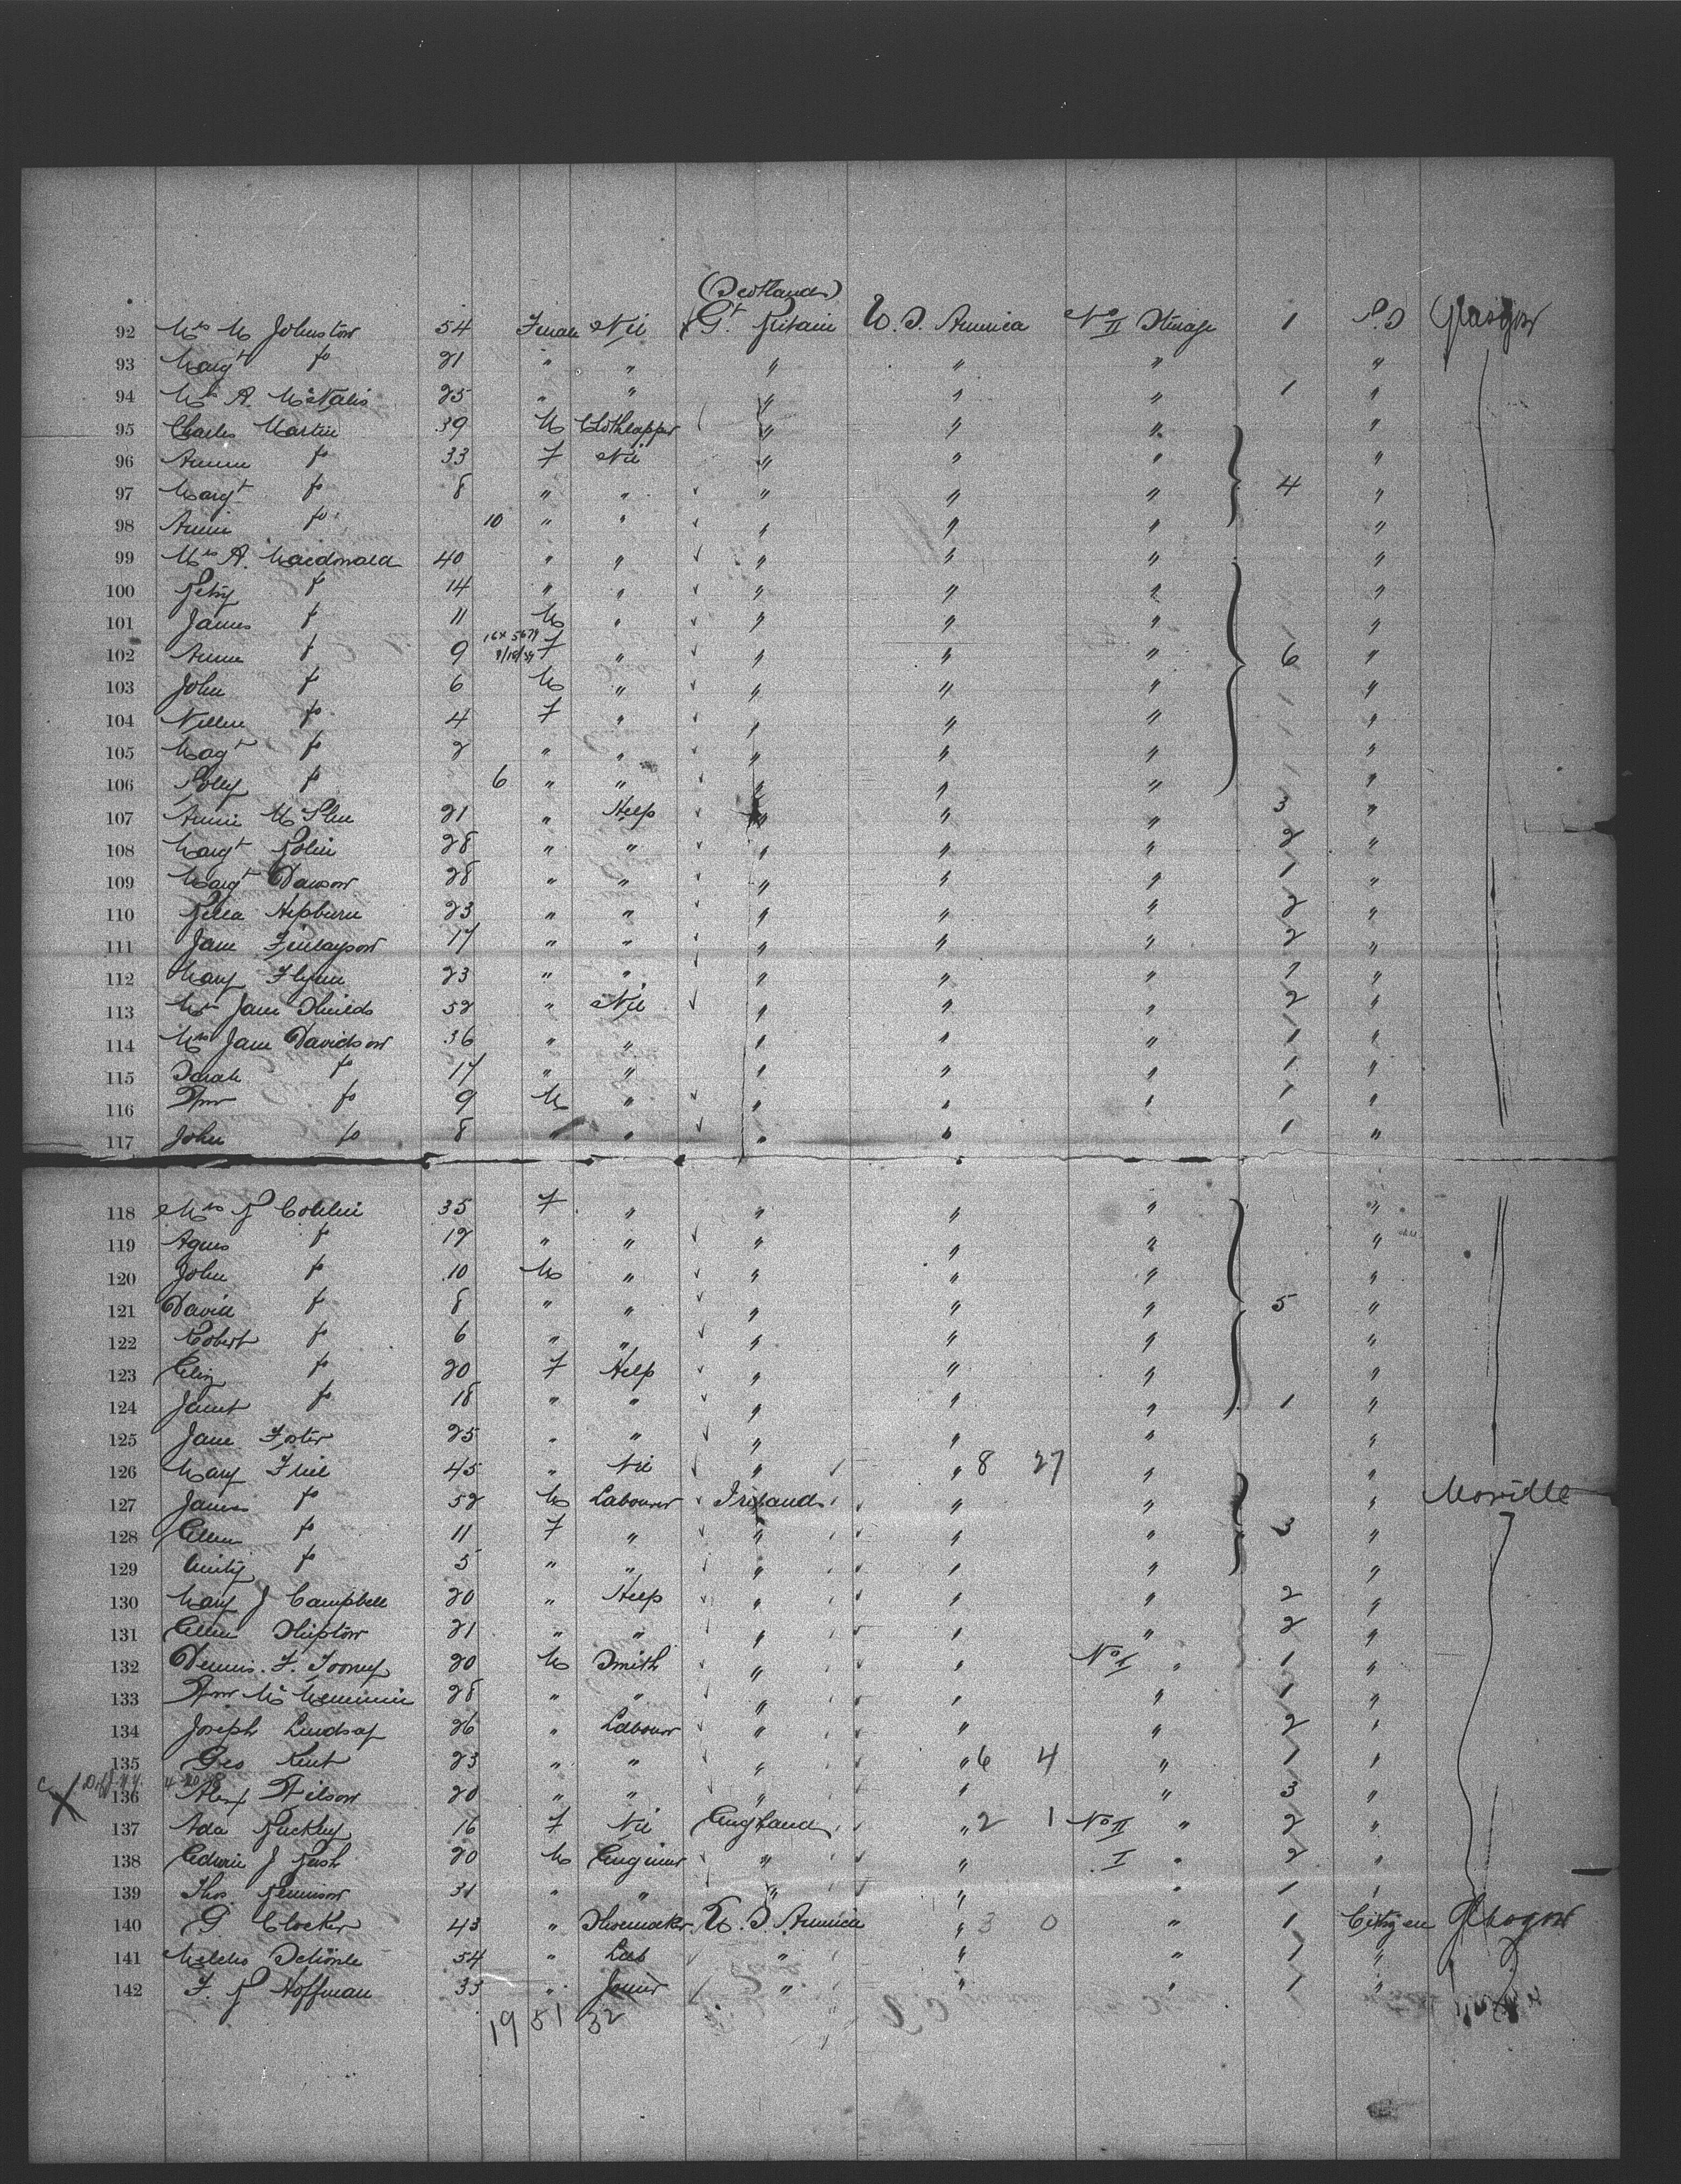 (Scotland)
92 Mrs M Johnston 54 Female Nil Gt. Britain U. S. America No II Steerage 1 P.S Glasgow
93 Margt Do 21 " " " " " "
94 Mrs A. 25 " " " " " 1 "
95 Charles Martin 39 M " " " "
96 Annie Do 33 F Nil " " " "
97 Margt Do 8 " " " " " 4 "
98 Annie Do 10 " " " " " "
99 Mrs A. Macdonald 40 " " " " " "
100 Betsy Do 14 " " " " " "
101 James Do 11 M " " " " "
16X 5679
102 Annie Do 9 F " " " " 6 "
103 John Do 6 M " " " " "
104 Nellie Do 4 F " " " " "
105 Magt Do 2 " " " " " "
106 Do 6 " " " " " "
107 Annie 21 " Help " " " 3 "
108 Margt 28 " " " " " 2 "
109 Margt Dawson 28 " " " " " 1 "
110 Bella Hepburn 23 " " " " " 2 "
111 Jane Finlayson 17 " " " " " 2 "
112 Mary Flynn 23 " " " " " 1 "
113 Mrs Jane Shields 52 " Nil " " " 2 "
114 Mrs Jane Davidson 36 " " " " " 1 "
115 Sarah Do 17 " " " " " 1 "
116 Wm Do 9 M " " " " 1 "
117 John Do 8 " " " " " 1 "
118 Mrs 35 F " " " " "
119 Agnes Do 12 " " " " " "
120 John Do 10 M " " " " "
121 David Do 8 " " " " " 5 "
122 Robert Do 6 " " " " " "
123 Eliz Do 20 F Help " " " "
124 Janet Do 18 " " " " " 1 "
125 Jane Foster 25 " " " " " "
126 Mary Friel 45 " Nil " " 8 27 " "
127 James Do 52 M Labourer Ireland " " " Moville
128 Ellen Do 11 F " " " " 3 "
129 Do 5 " " " " " "
130 Mary J Campbell 20 " Help " " " 2 "
131 Ellen 21 " " " " " 2 "
132 Dennis. F. Toomey 20 M Smith " " No I " 1 "
133 Wm Mc Menimin 28 " " " " " 1 "
134 Joseph Lindsay 26 " Labourer " " " 2 "
135 Geo Kent 23 " " " " 6 4 " 1 "
136 Alexr Wilson 20 " " " " " 3 "
137 Ada Buckley 16 F Nil England " 2 1 No II " 2 "
138 Edwin J Rush 20 M Engineer " " I " 2 "
139 Thos. Rennison 31 " " " " " 1 "
140 G Clocker 43 " Shoemaker U. S. America " 3 0 " 1 Citizen Glasgow
141 54 " " " " 1 "
142 F. B Hoffman 33 " Joiner " " " 1 "
19 51 32